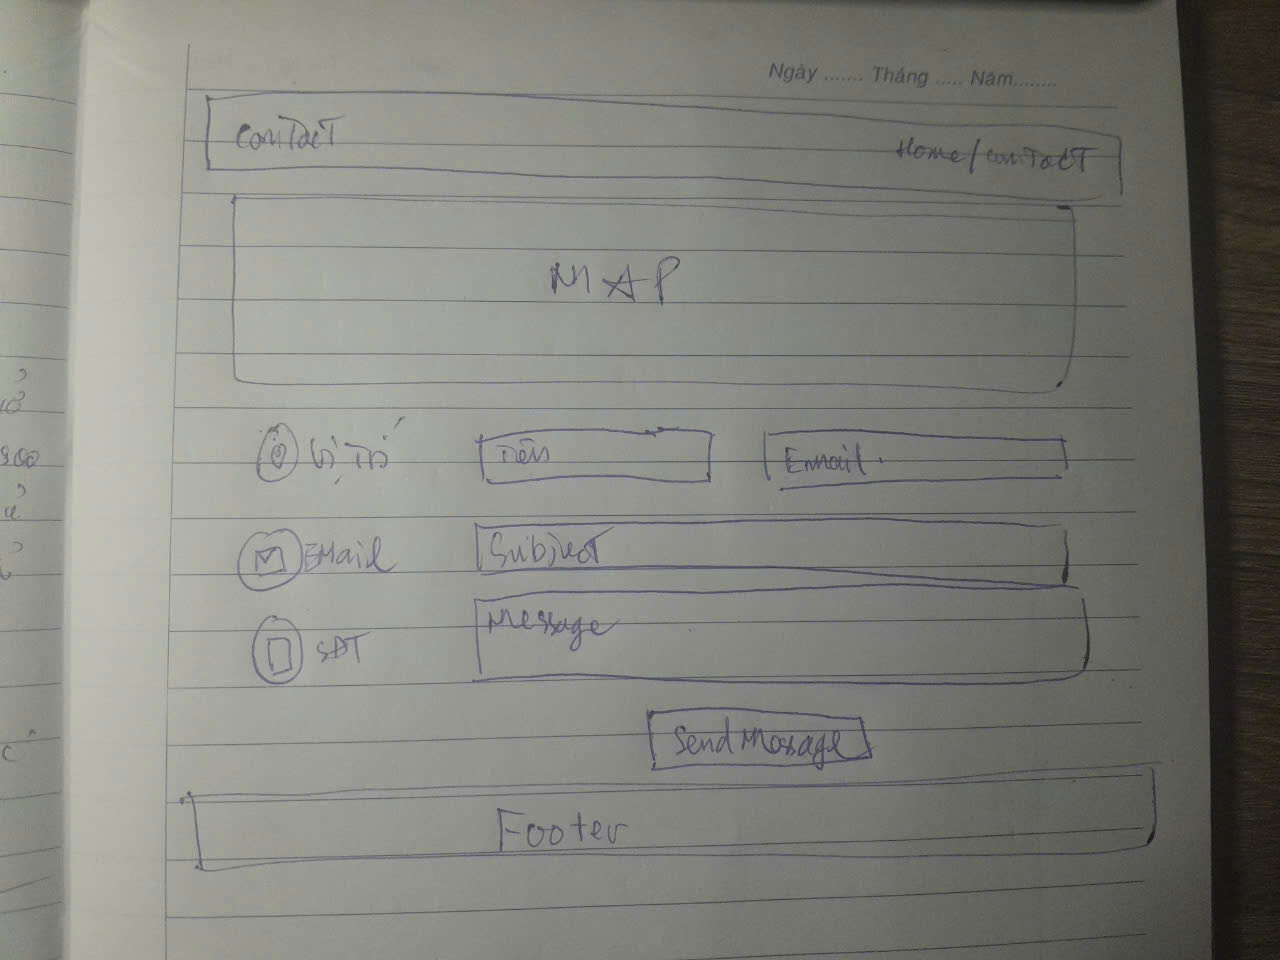 Ngày ....... Tháng ..... Năm........
Contact
Home/contact
MAP
Vị Trí
Tên
Email.
EMail
Subject
Message
SĐT
Send Message
Footer